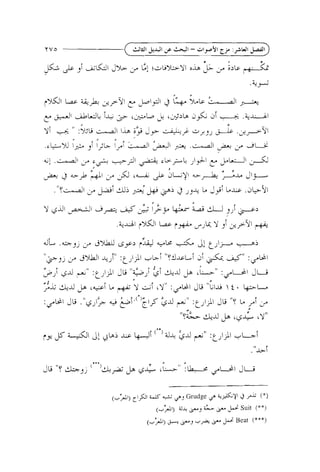 الفصل العاشر: مزج الأصوات - البحث عن البديل الثالث ٢٧٥
تمكّنهم عادة من حلّ هذه الاختلافات؛ إمّا من خلال التكاتف أو على شكل
تسوية.
يعتبر الصمت عاملاً مهمّاً في التواصل مع الآخرين بطريقة عصا الكلام
الهندية. يجب أن نكون هادئين، بل صامتين، حتى نبدأ بالتعاطف العميق مع
الآخرين. علّق روبرت غرينليفت حول قوة هذا الصمت قائلاً: "يجب ألا
نخاف من بعض الصمت. يعتبر البعض الصمت أمراً جائراً أو مثيراً للاستياء.
لكن التعامل مع الحوار باسترخاء يقتضي الترحيب بشيء من الصمت. إنه
سؤال مدمّر يطرحه الإنسان على نفسه، لكن من المهمّ طرحه في بعض
الأحيان. عندما أقول ما يدور في ذهني فهل يُعتبر ذلك أفضل من الصمت؟".
دعني أروِ لك قصة سمعتها مؤخراً تبيّن كيف يتصرف الشخص الذي لا
يفهم الآخرين أو لا يمارس مفهوم عصا الكلام الهندية.
ذهب مزارع إلى مكتب محاميه ليقدّم دعوى للطلاق من زوجته. سأله
المحامي: "كيف يمكنني أن أساعدك؟" أجاب المزارع: "أريد الطلاق من زوجتي"
قال المحامي: "حسناً، هل لديك أي أرضية؟" قال المزارع: "نعم لدي أرضٌ
مساحتها ١٤٠ فداناً" قال المحامي: "لا، أنت لا تفهم ما أعنيه، هل لديك تذمّر(*)
من أمرٍ ما؟" قال المزارع: "نعم لدي كراجٌ أضع فيه جراري". قال المحامي:
"لا، سيّدي، هل لديك حجّة؟"
أجاب المزارع: "نعم لديّ بدلة(**) ألبسها عند ذهابي إلى الكنيسة كل يوم
أحد."
قال المحامي محبطاً: "حسناً، سيّدي هل تضربك(***) زوجتك؟" قال
(*) تذمر في الإنكليزية هي Grudge وهي تشبه كلمة الكراج (المعرّب)
(**) Suit تحمل معنى حجّة ومعنى بدلة (المعرّب)
(***) Beat تحمل معنى يضرب ومعنى يسبق (المعرّب)